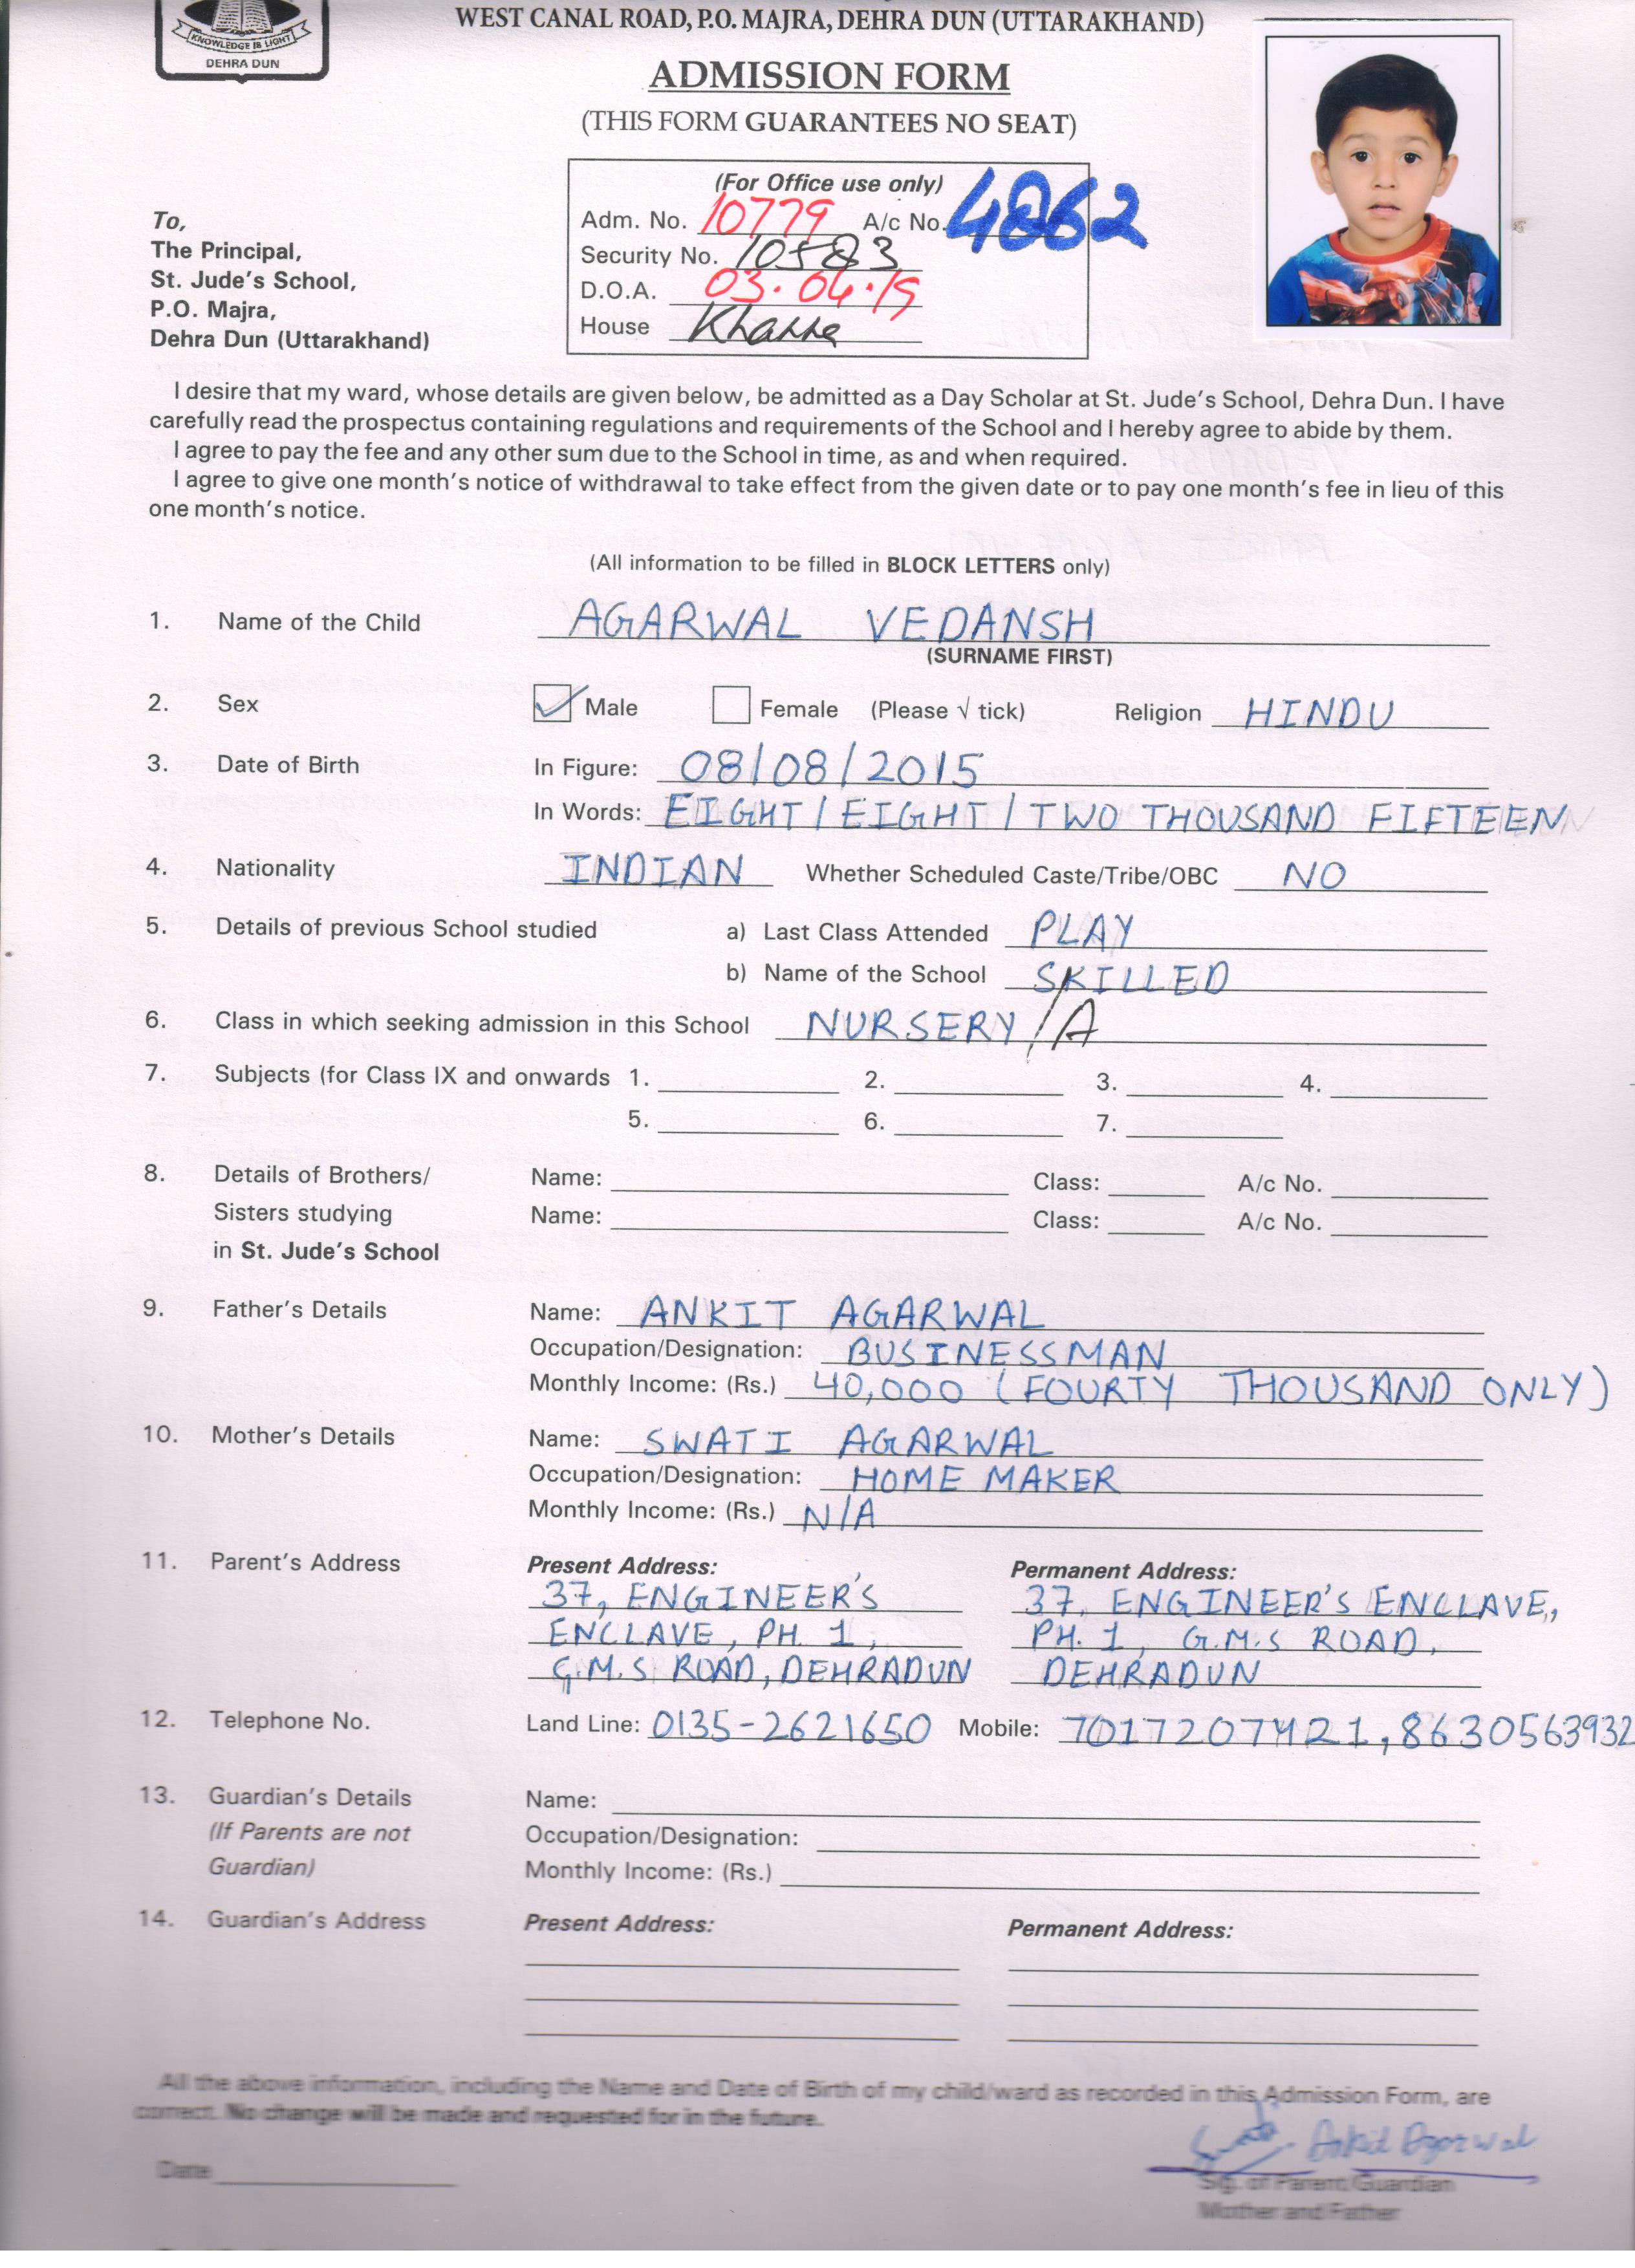 KNOWLEDGE IS LIGHT
DEHRA DUN
WEST CANAL ROAD, P.O. MAJRA, DEHRA DUN (UTTARAKHAND)
ADMISSION FORM
(THIS FORM GUARANTEES NO SEAT)
(For Office use only)
Adm. No. 10779 A/c No. 4862
Security No. 10583
D.O.A. 03.04.19
House
To,
The Principal,
St. Jude's School,
P.O. Majra,
Dehra Dun (Uttarakhand)
I desire that my ward, whose details are given below, be admitted as a Day Scholar at St. Jude's School, Dehra Dun. I have
carefully read the prospectus containing regulations and requirements of the School and I hereby agree to abide by them.
I agree to pay the fee and any other sum due to the School in time, as and when required.
I agree to give one month's notice of withdrawal to take effect from the given date or to pay one month's fee in lieu of this
one month's notice.
(All information to be filled in BLOCK LETTERS only)
1. Name of the Child AGARWAL VEDANSH
(SURNAME FIRST)
2. Sex Male Female (Please √ tick) Religion HINDU
3. Date of Birth In Figure: 08/08/2015
In Words: EIGHT / EIGHT / TWO THOUSAND FIFTEEN
4. Nationality INDIAN Whether Scheduled Caste/Tribe/OBC NO
5. Details of previous School studied a) Last Class Attended PLAY
b) Name of the School SKILLED
6. Class in which seeking admission in this School NURSERY / A
7. Subjects (for Class IX and onwards 1. 2. 3. 4.
5. 6. 7.
8. Details of Brothers/ Name: Class: A/c No.
Sisters studying Name: Class: A/c No.
in St. Jude's School
9. Father's Details Name: ANKIT AGARWAL
Occupation/Designation: BUSINESSMAN
Monthly Income: (Rs.) 40,000 (FOURTY THOUSAND ONLY)
10. Mother's Details Name: SWATI AGARWAL
Occupation/Designation: HOME MAKER
Monthly Income: (Rs.) N/A
11. Parent's Address Present Address: Permanent Address:
37, ENGINEER'S 37, ENGINEER'S ENCLAVE,
ENCLAVE, PH. 1, PH. 1, G.M.S ROAD,
G.M.S ROAD, DEHRADUN DEHRADUN
12. Telephone No. Land Line: 0135-2621650 Mobile: 7017207421, 8630563932
13. Guardian's Details Name:
(If Parents are not Occupation/Designation:
Guardian) Monthly Income: (Rs.)
14. Guardian's Address Present Address: Permanent Address:
All the above information, including the Name and Date of Birth of my child/ward as recorded in this Admission Form, are
correct. No change will be made and requested for in the future.
Swati Ankit Agarwal
Date Sig. of Parent/Guardian
Mother and Father